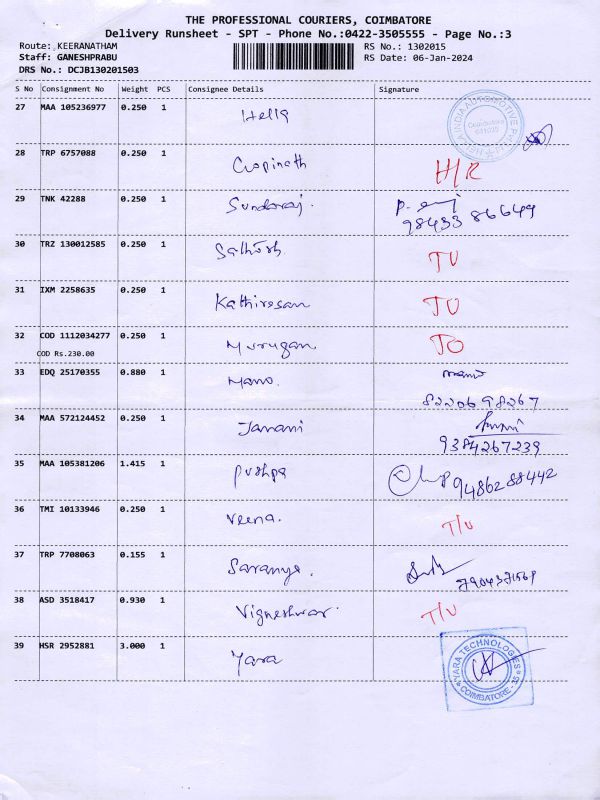 THE PROFESSIONAL COURIERS, COIMBATORE
Delivery Runsheet - SPT - Phone No.:0422-3505555 - Page No.:3
Route: KEERANATHAM RS No.: 1302015
Staff: GANESHPRABU RS Date: 06-Jan-2024
DRS No.: DCJB130201503
S No Consignment No Weight PCS Consignee Details Signature
27 MAA 105236977 0.250 1 Hella
HELLA INDIA AUTOMOTIVE PVT LTD
Coimbatore
641035
28 TRP 6757088 0.250 1 Gopinath H/R
29 TNK 42288 0.250 1 Sundaraj.
98433 86649
30 TRZ 130012585 0.250 1 Sathish TU
31 IXM 2258635 0.250 1 Kathiresan TU
32 COD 1112034277 0.250 1 Murugan TO
COD Rs.230.00
33 EDQ 25170355 0.880 1 Mano.
8220698267
34 MAA 572124452 0.250 1 Janani
9384267239
35 MAA 105381206 1.415 1 Pushpa 9486288442
36 TMI 10133946 0.250 1 Veena. T/U
37 TRP 7708063 0.155 1 Saranya.
38 ASD 3518417 0.930 1 Vigneshwar T/U
39 HSR 2952881 3.000 1 Yara
YARA TECHNOLOGIES
COIMBATORE - 35